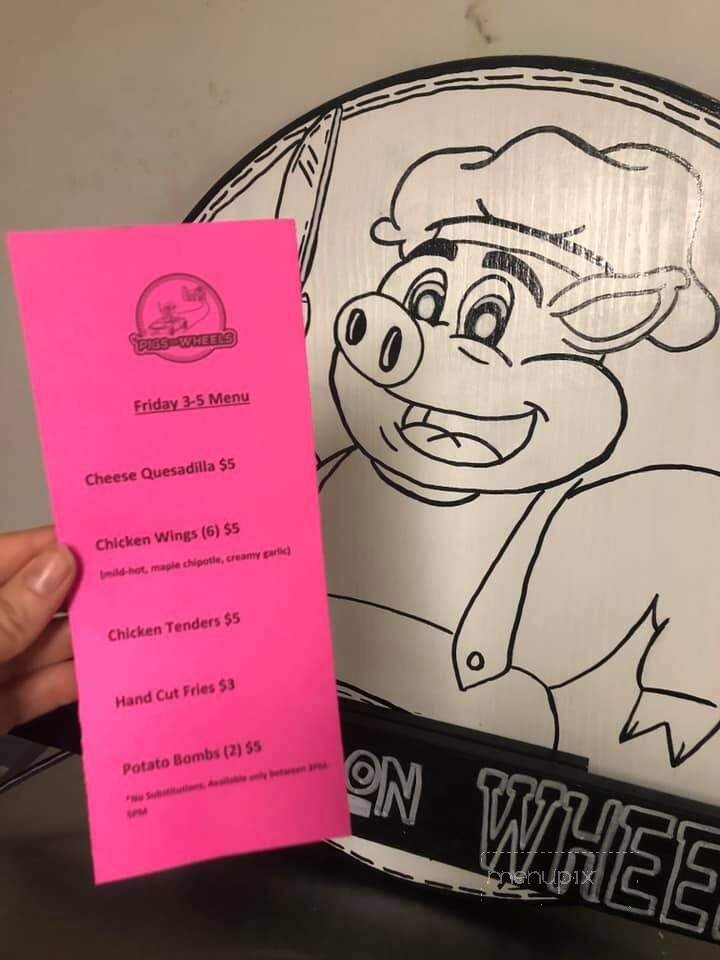 PIGS ON WHEELS
Friday 3-5 Menu
Cheese Quesadilla $5
Chicken Wings (6) $5
(mild-hot, maple chipotle, creamy garlic)
Chicken Tenders $5
Hand Cut Fries $3
Potato Bombs (2) $5
*No Substitutions, Available only between 3PM-
5PM
ON WHEE
menupix